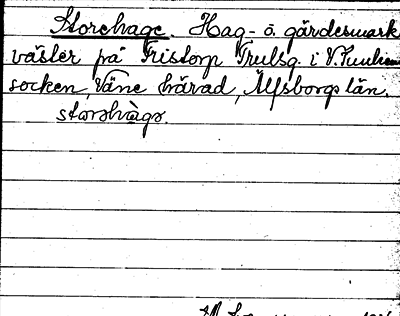 Storehage. Hag- o. gärdesmark
väster på Fristorp Trulsg. i V. Tunhems
socken, Väne härad, Älfsborgs län.
storehàgo.